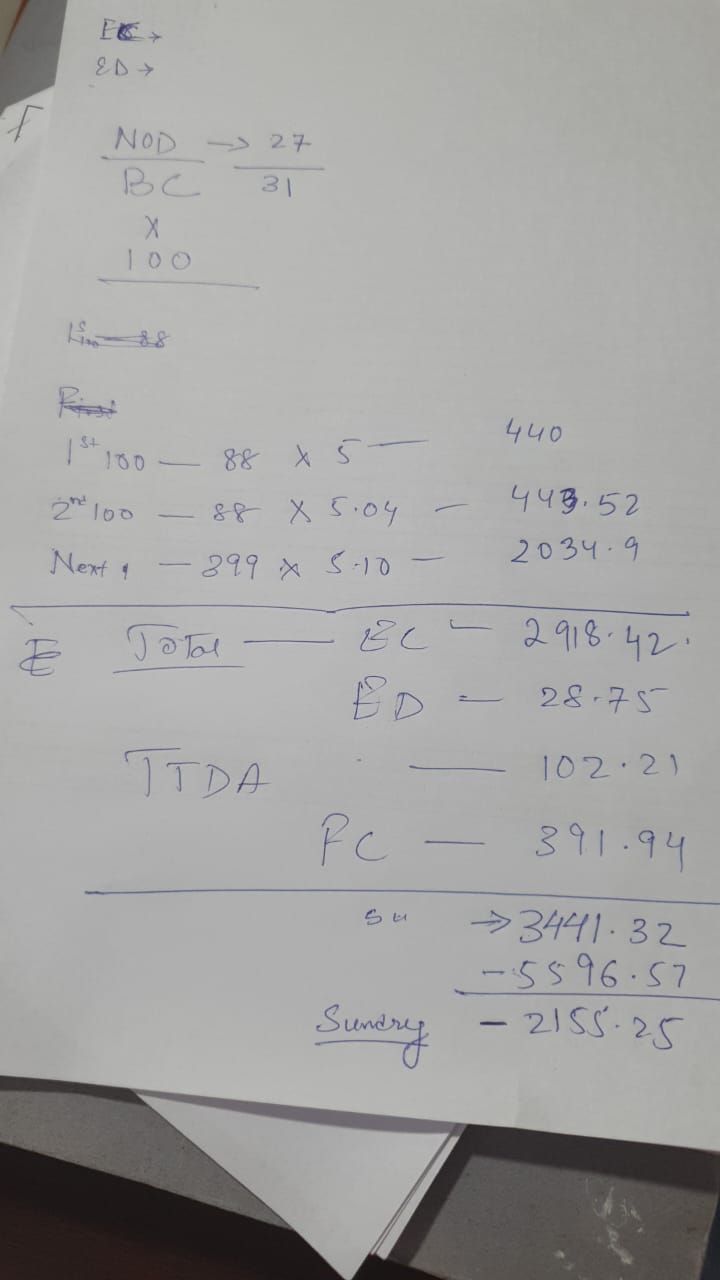 EC →
ED →
F
NOD → 27
BC 31
X
100
1st 100 — 88 X 5 — 440
2nd 100 — 88 X 5.04 — 443.52
Next — 399 X 5.10 — 2034.9
E Total — EC — 2918.42
ED — 28.75
TTDA — 102.21
FC — 391.94
Su → 3441.32
-5596.57
Sundry - 2155.25